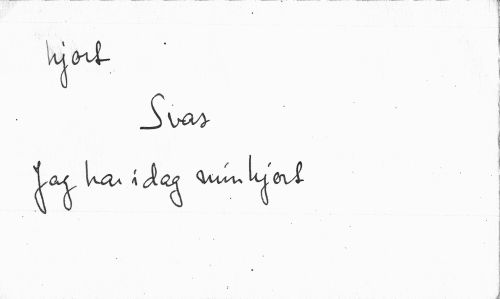 hjort
Svas
Jag har idag min hjort